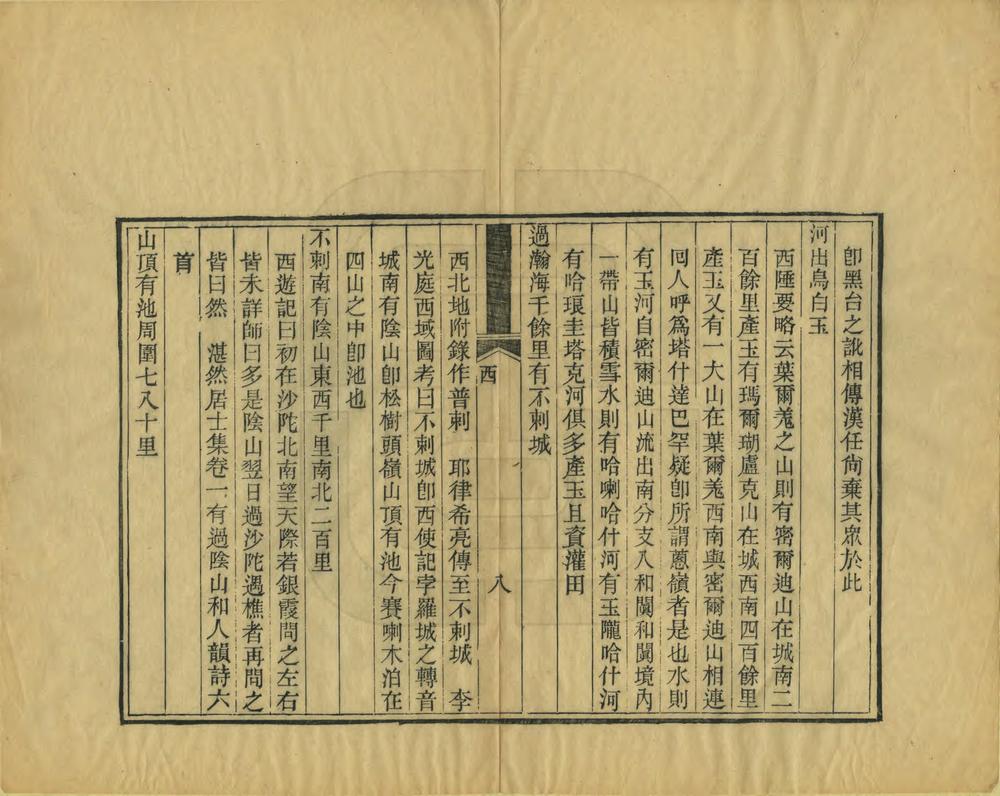 卽黑台之訛相傳漢任尙棄其眾於此
河出烏白玉
西陲要略云葉爾羗之山則有密爾迪山在城南二
百餘里產玉有瑪爾瑚盧克山在城西南四百餘里
產玉又有一大山在葉爾羗西南與密爾迪山相連
囘人呼爲塔什達巴罕疑卽所謂蔥嶺者是也水則
有玉河自密爾迪山流出南分支入和闐和闐境內
一帶山皆積雪水則有哈喇哈什河有玉隴哈什河
有哈琅圭塔克河俱多產玉且資灌田
過瀚海千餘里有不剌城
西
八
西北地附錄作普剌　耶律希亮傳至不剌城　李
光庭西域圖考曰不剌城卽西使記孛羅城之轉音
城南有陰山卽松樹頭嶺山頂有池今賽喇木泊在
四山之中卽池也
不剌南有陰山東西千里南北二百里
西遊記曰初在沙陀北南望天際若銀霞問之左右
皆未詳師曰多是陰山翌日過沙陀遇樵者再問之
皆曰然　湛然居士集卷一有過陰山和人韻詩六
首
山頂有池周圍七八十里